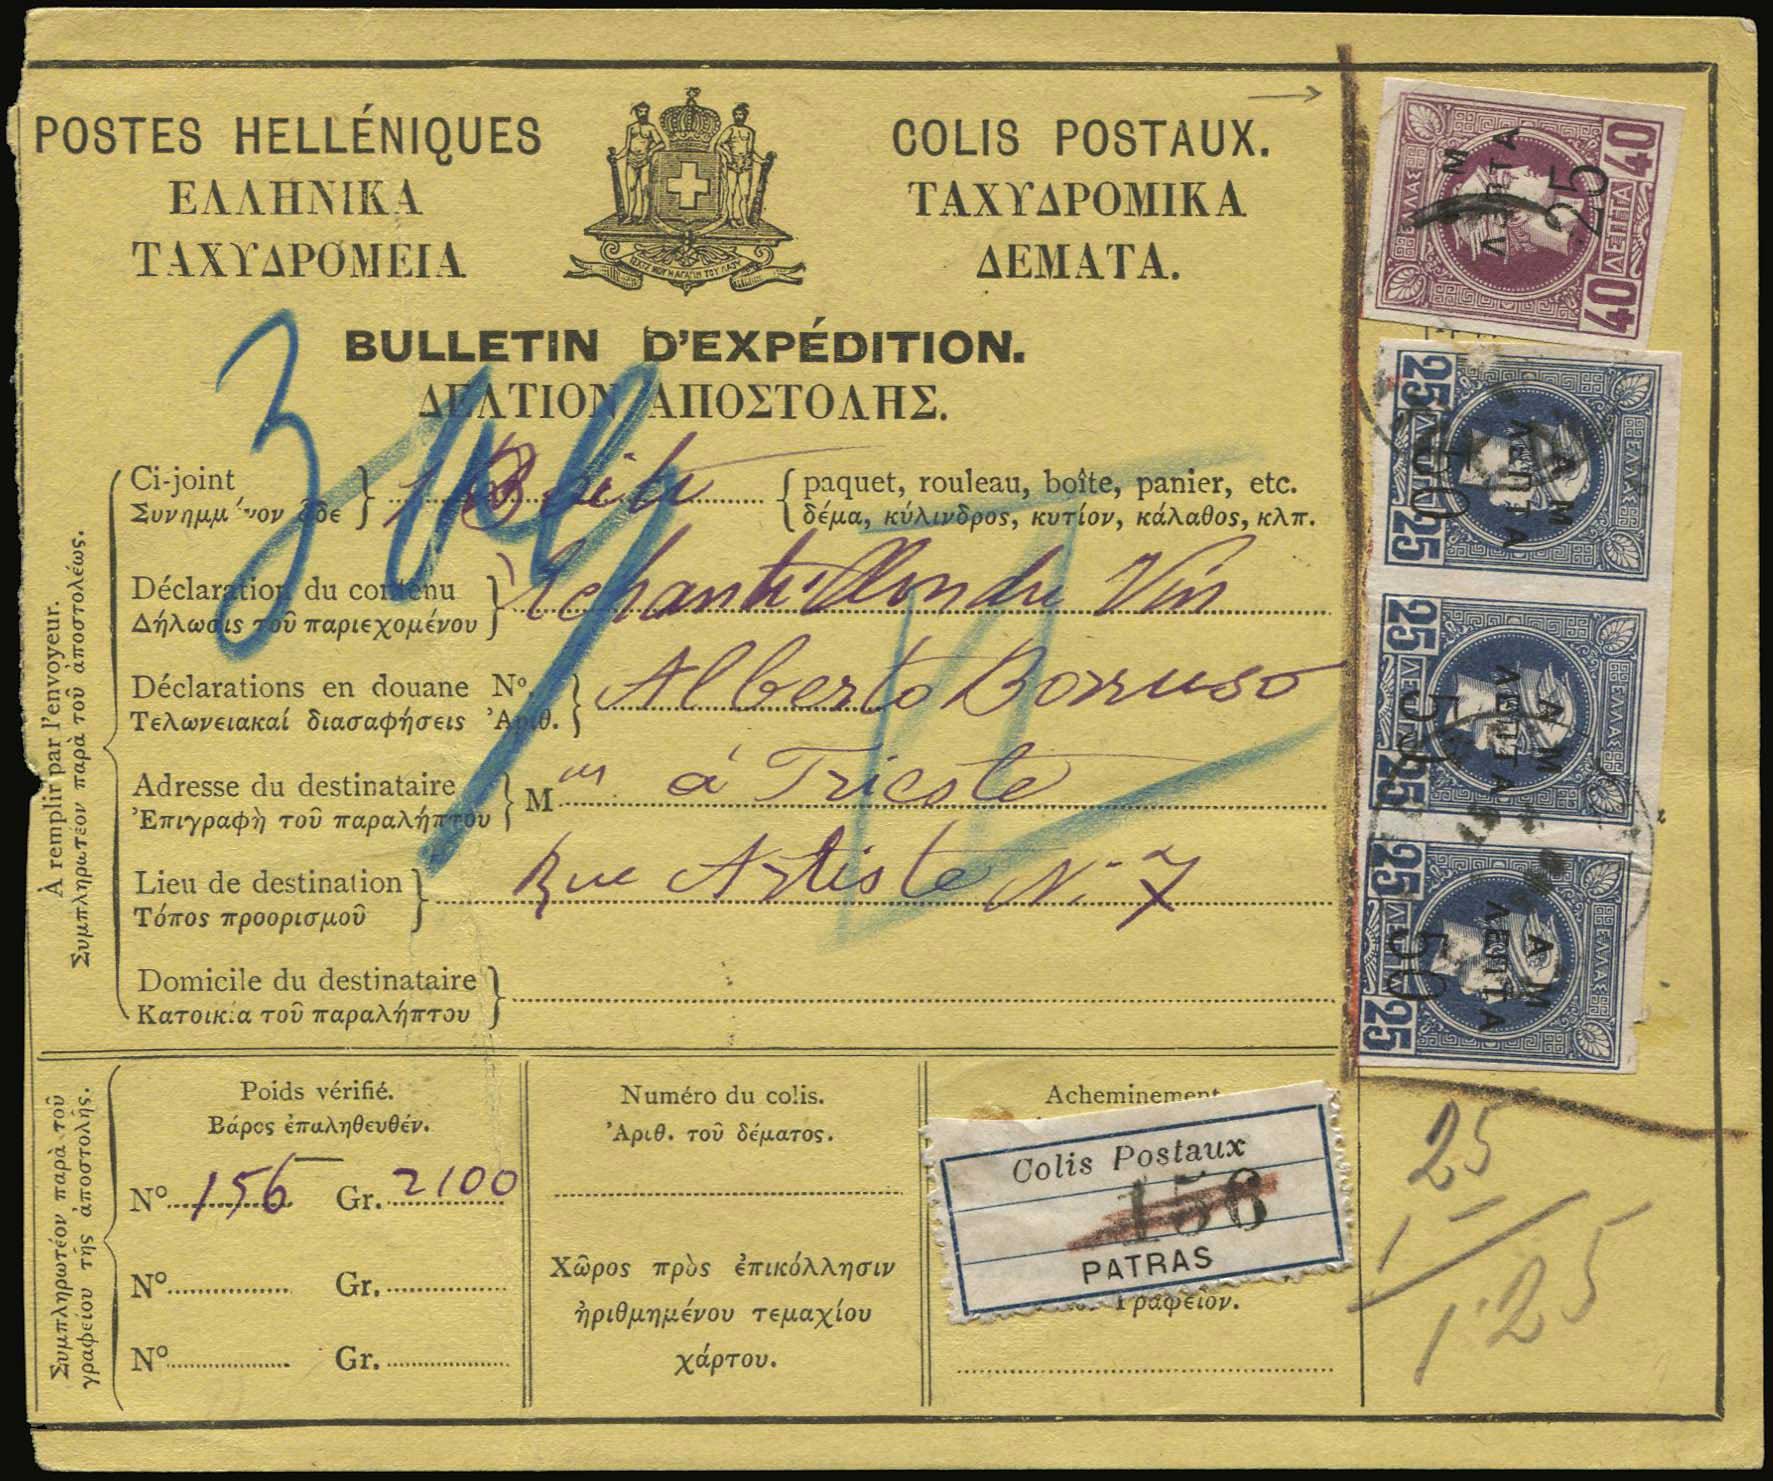 POSTES HELLÉNIQUES
ΕΛΛΗΝΙΚΑ
ΤΑΧΥΔΡΟΜΕΙΑ
ΙΣΧΥΣ ΜΟΥ Η ΑΓΑΠΗ ΤΟΥ ΛΑΟΥ
COLIS POSTAUX.
ΤΑΧΥΔΡΟΜΙΚΑ
ΔΕΜΑΤΑ.
BULLETIN D'EXPÉDITION.
ΔΕΛΤΙΟΝ ΑΠΟΣΤΟΛΗΣ.
À remplir par l'envoyeur.
Συμπληρωτέον παρὰ τοῦ ἀποστολέως.
Ci-joint 1 Boite paquet, rouleau, boîte, panier, etc.
Συνημμένον ὧδε δέμα, κύλινδρος, κυτίον, κάλαθος, κλπ.
Déclaration du contenu Echantillon du Vin
Δήλωσις τοῦ παριεχομένου
Déclarations en douane Nº. Alberto Bonuso
Τελωνειακαί διασαφήσεις Ἀριθ.
Adresse du destinataire M à Trieste
Ἐπιγραφὴ τοῦ παραλήπτου
Lieu de destination Rue Artiste N. 7
Τόπος προορισμοῦ
Domicile du destinataire
Κατοικία τοῦ παραλήπτου
Συμπληρωτέον παρὰ τοῦ
γραφείου τῆς ἀποστολῆς.
Poids vérifié.
Βάρος ἐπαληθευθέν.
Nº 156 Gr. 2100
Nº Gr.
Nº Gr.
Numéro du colis.
Ἀριθ. τοῦ δέματος.
Χῶρος πρὸς ἐπικόλλησιν
ἠριθμημένου τεμαχίου
χάρτου.
Acheminement
Colis Postaux
156
PATRAS
Γραφεῖον.
ΕΛΛΑΣ
40 ΛΕΠΤΑ 40
Α Μ
ΛΕΠΤΑ
25
ΕΛΛΑΣ
25 ΛΕΠ 25
Α Μ
ΛΕΠΤΑ
50
ΕΛΛΑΣ
25 ΛΕΠ 25
Α Μ
ΛΕΠΤΑ
50
ΕΛΛΑΣ
25 ΛΕΠ 25
Α Μ
ΛΕΠΤΑ
50
25
1 -
1.25